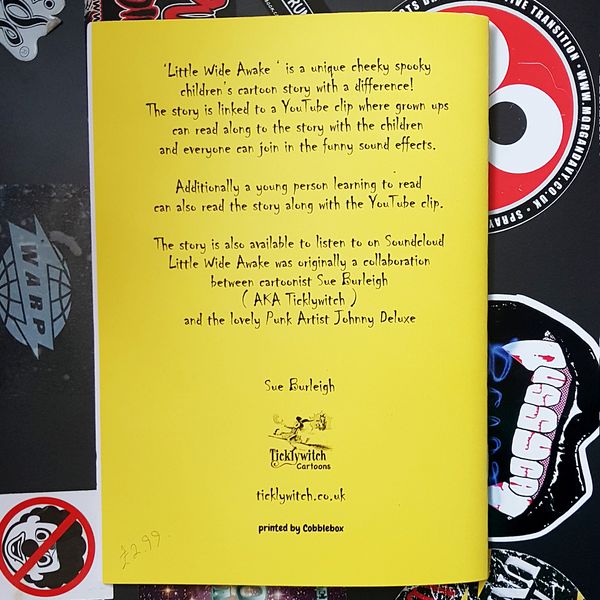 'Little Wide Awake ' is a unique cheeky spooky
children's cartoon story with a difference!
The story is linked to a YouTube clip where grown ups
can read along to the story with the children
and everyone can join in the funny sound effects.
Additionally a young person learning to read
can also read the story along with the YouTube clip.
The story is also available to listen to on Soundcloud
Little Wide Awake was originally a collaboration
between cartoonist Sue Burleigh
( AKA Ticklywitch )
and the lovely Punk Artist Johnny Deluxe
Sue Burleigh
Ticklywitch
Cartoons
ticklywitch.co.uk
printed by Cobblebox
£2.99
WARP
TIVE TRANSITION
WWW.MORGANDAVY.CO.UK
SPRAY